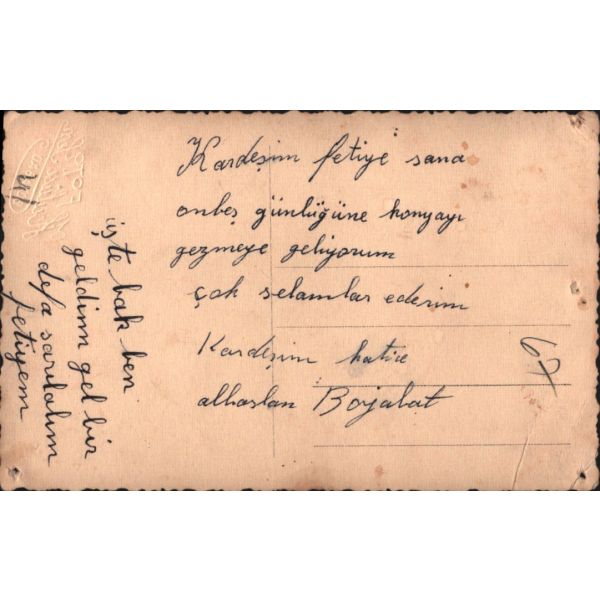 Kardeşim fetiye sana
onbeş günlüğüne konyayı
gezmeye geliyorum
çok selamlar ederim
Kardeşim hatice
alhaslan Boyabat
işte bak ben
geldim gel bir
defa sarılalım
fetiyem
67